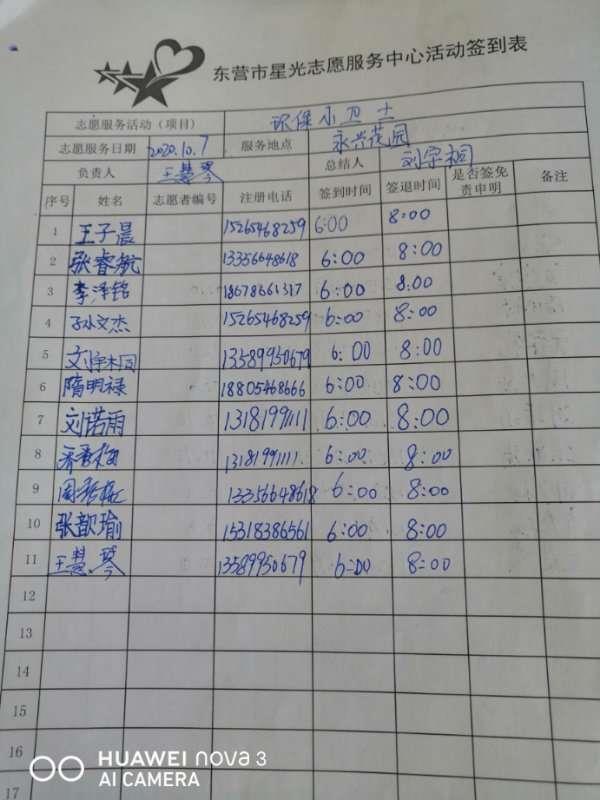 东营市星光志愿服务中心活动签到表
志愿服务活动（项目） 环保小卫士
志愿服务日期 2020.10.7 服务地点 永兴花园
负责人 王慧琴 总结人 刘宇桐
序号 姓名 志愿者编号 注册电话 签到时间 签退时间 是否签免责申明 备注
1 王子晨 15265468259 6:00 8:00
2 张睿航 13356648618 6:00 8:00
3 李泽铭 18678661317 6:00 8:00
4 孙文杰 15265468259 6:00 8:00
5 刘宇桐 13589950679 6:00 8:00
6 隋明禄 18805468666 6:00 8:00
7 刘诺雨 13181991111 6:00 8:00
8 13181991111 6:00 8:00
9 13356648618 6:00 8:00
10 张歆瑜 15318386561 6:00 8:00
11 王慧琴 13589950679 6:00 8:00
12
13
14
15
16
17
HUAWEI nova 3
AI CAMERA